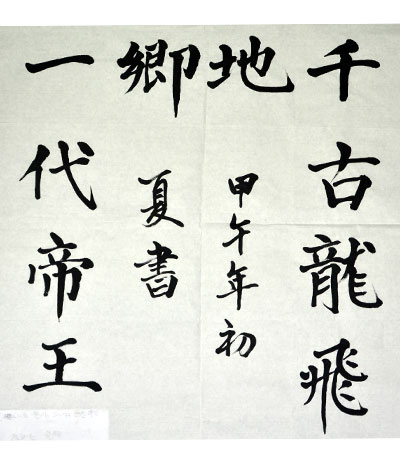 千古龍飛
地
一代帝王
鄉
甲午年初
夏書